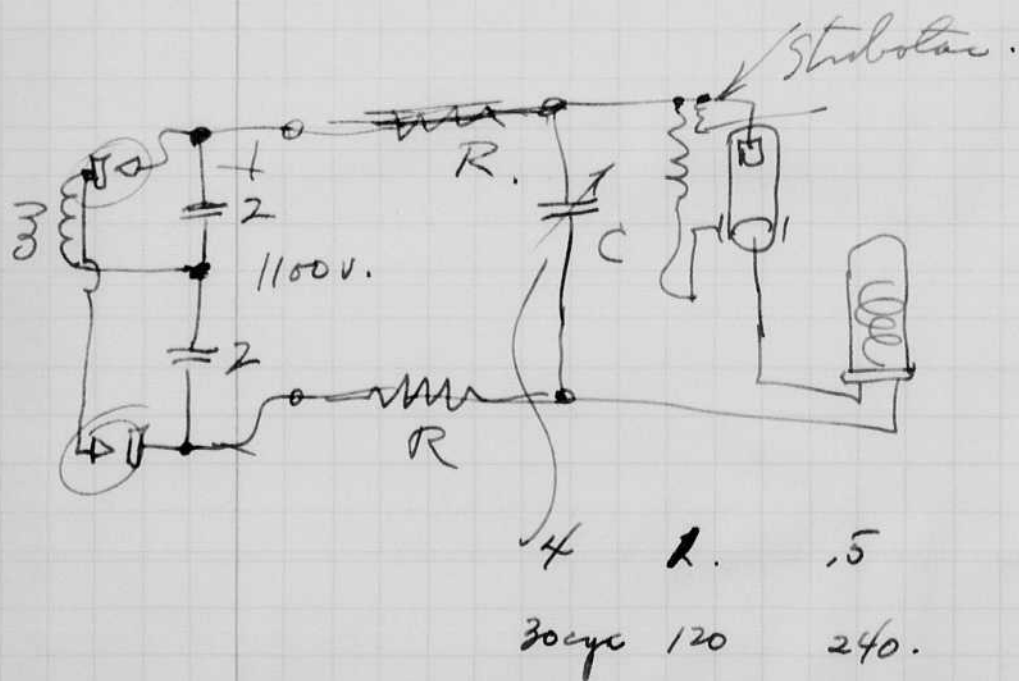 Strobotac.
R.
+
2
C
1100 v.
2
R
4 1. .5
30 cyc 120 240.